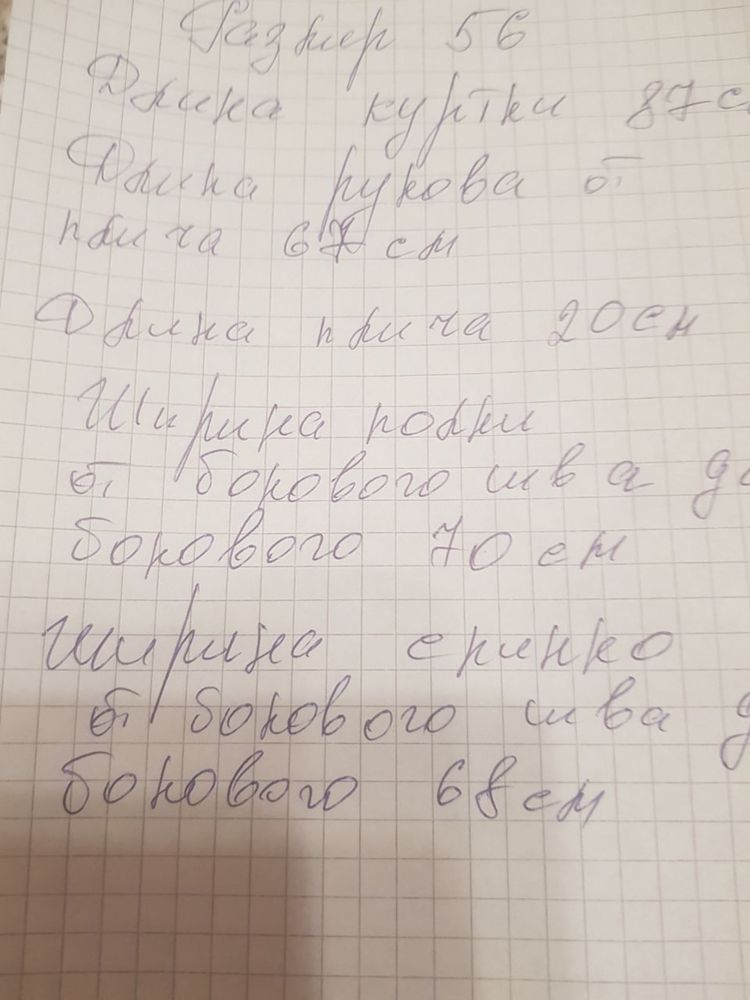 Размер 56
Длина куртки 87с
Длина рукова от
плича 67 см
Длина плича 20см
Ширина полки
от бокового шва до
бокового 70 см
Ширина спинко
от бокового шва д
бокового 68см